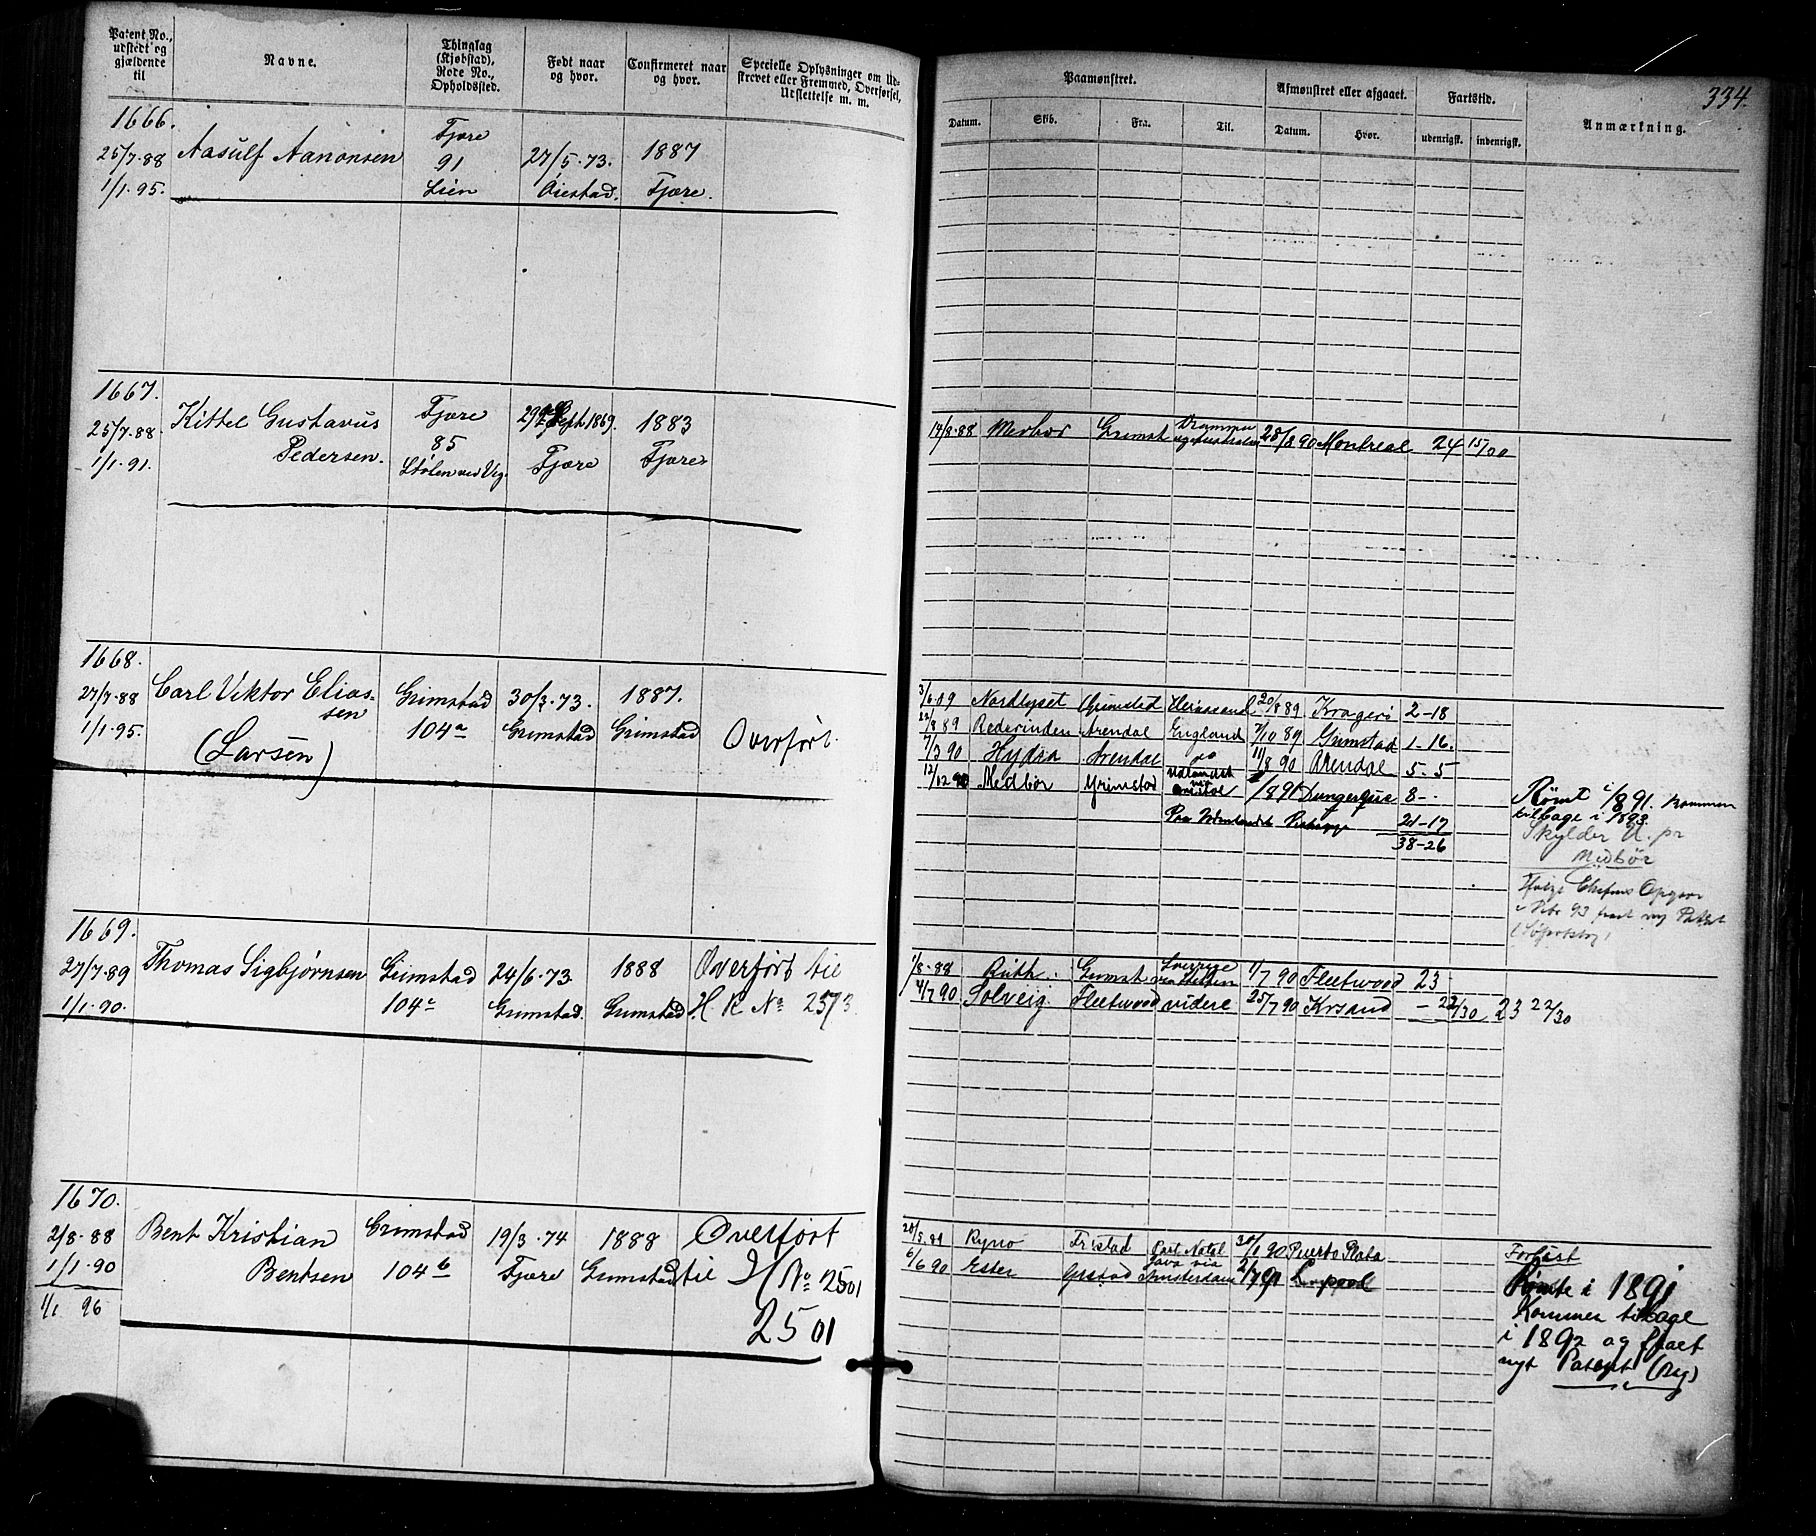 334.
Patent No., udstedt og gjældende til
Navne.
Thinglag (Kjøbstad), Rode No., Opholdssted.
Født naar og hvor.
Confirmeret naar og hvor.
Specielle Oplysninger om Udskrevet eller Fremmed, Overførsel, Udslettelse m. m.
Paamønstret.
Afmønstret eller afgaaet.
Fartstid.
Anmærkning.
Datum. Skib. Fra. Til. Datum. Hvor. udenrigsk. indenrigsk.
1666.
Fjære
25/7.88 Aasulf Aanonsen 91 27/5.73. 1887
1/1.95. Lien Øiestad. Fjære.
1667.
25/7.88. Kittel Gustavus Fjære 29 Sept. 1869. 1883
Pedersen. 85
1/1.91. Stølen ved Vig. Fjære Fjære
14/8.88 Medbør Grimst Drammen 28/8 90 Montreal 24 15/30
1668.
27/7.88 Carl Viktor Elias- Grimstad 30/3.73. 1887.
sen
1/1.95. (Larsen) 104a Grimstad Grimstad Overført.
3/6.89 Nordlyset Grimstad 20/8 89 Kragerø 2-18
22/8 89 Rederinden Arendal England 7/10 89 Grimstad 1-16.
7/3 90 Hydra Arendal do 11/8 90 Arendal 5.5
12/12 90 Medbør Grimstad Udlandet 1/891 8-
21-17
38-26
Rømt 1/891. Kommen
tilbage i 1893.
Skylder U. pr
Medbør
1669.
27/7.89 Thomas Sigbjørnsen Grimstad 24/6.73. 1888 Overført til
1/1.90. 104c Grimstad. Grimstad H R No 2573.
1/8.88 Ruth. Grimst Sverige 1/7 90 Fleetwood 23
4/7 90 Solveig. Fleetwood videre 25/7 90 Krsand - 22/30 23 22/30
1670.
2/8.88 Bent Kristian Grimstad 19/3.74 1888 Overført
1/1.90 Bentsen 104b Fjære Grimstad til H No 2501
1/1 96
2501
28/5.89 Ryno Port Natal 30/1 90 Puerto Plata
6/6 90 Ester Grstad Java via Amsterdam 2/7 91 L.pool
Forlist
Rømte i 1891
Kommen tilbage
i 1892 og faaet
nyt Patent (Ny)